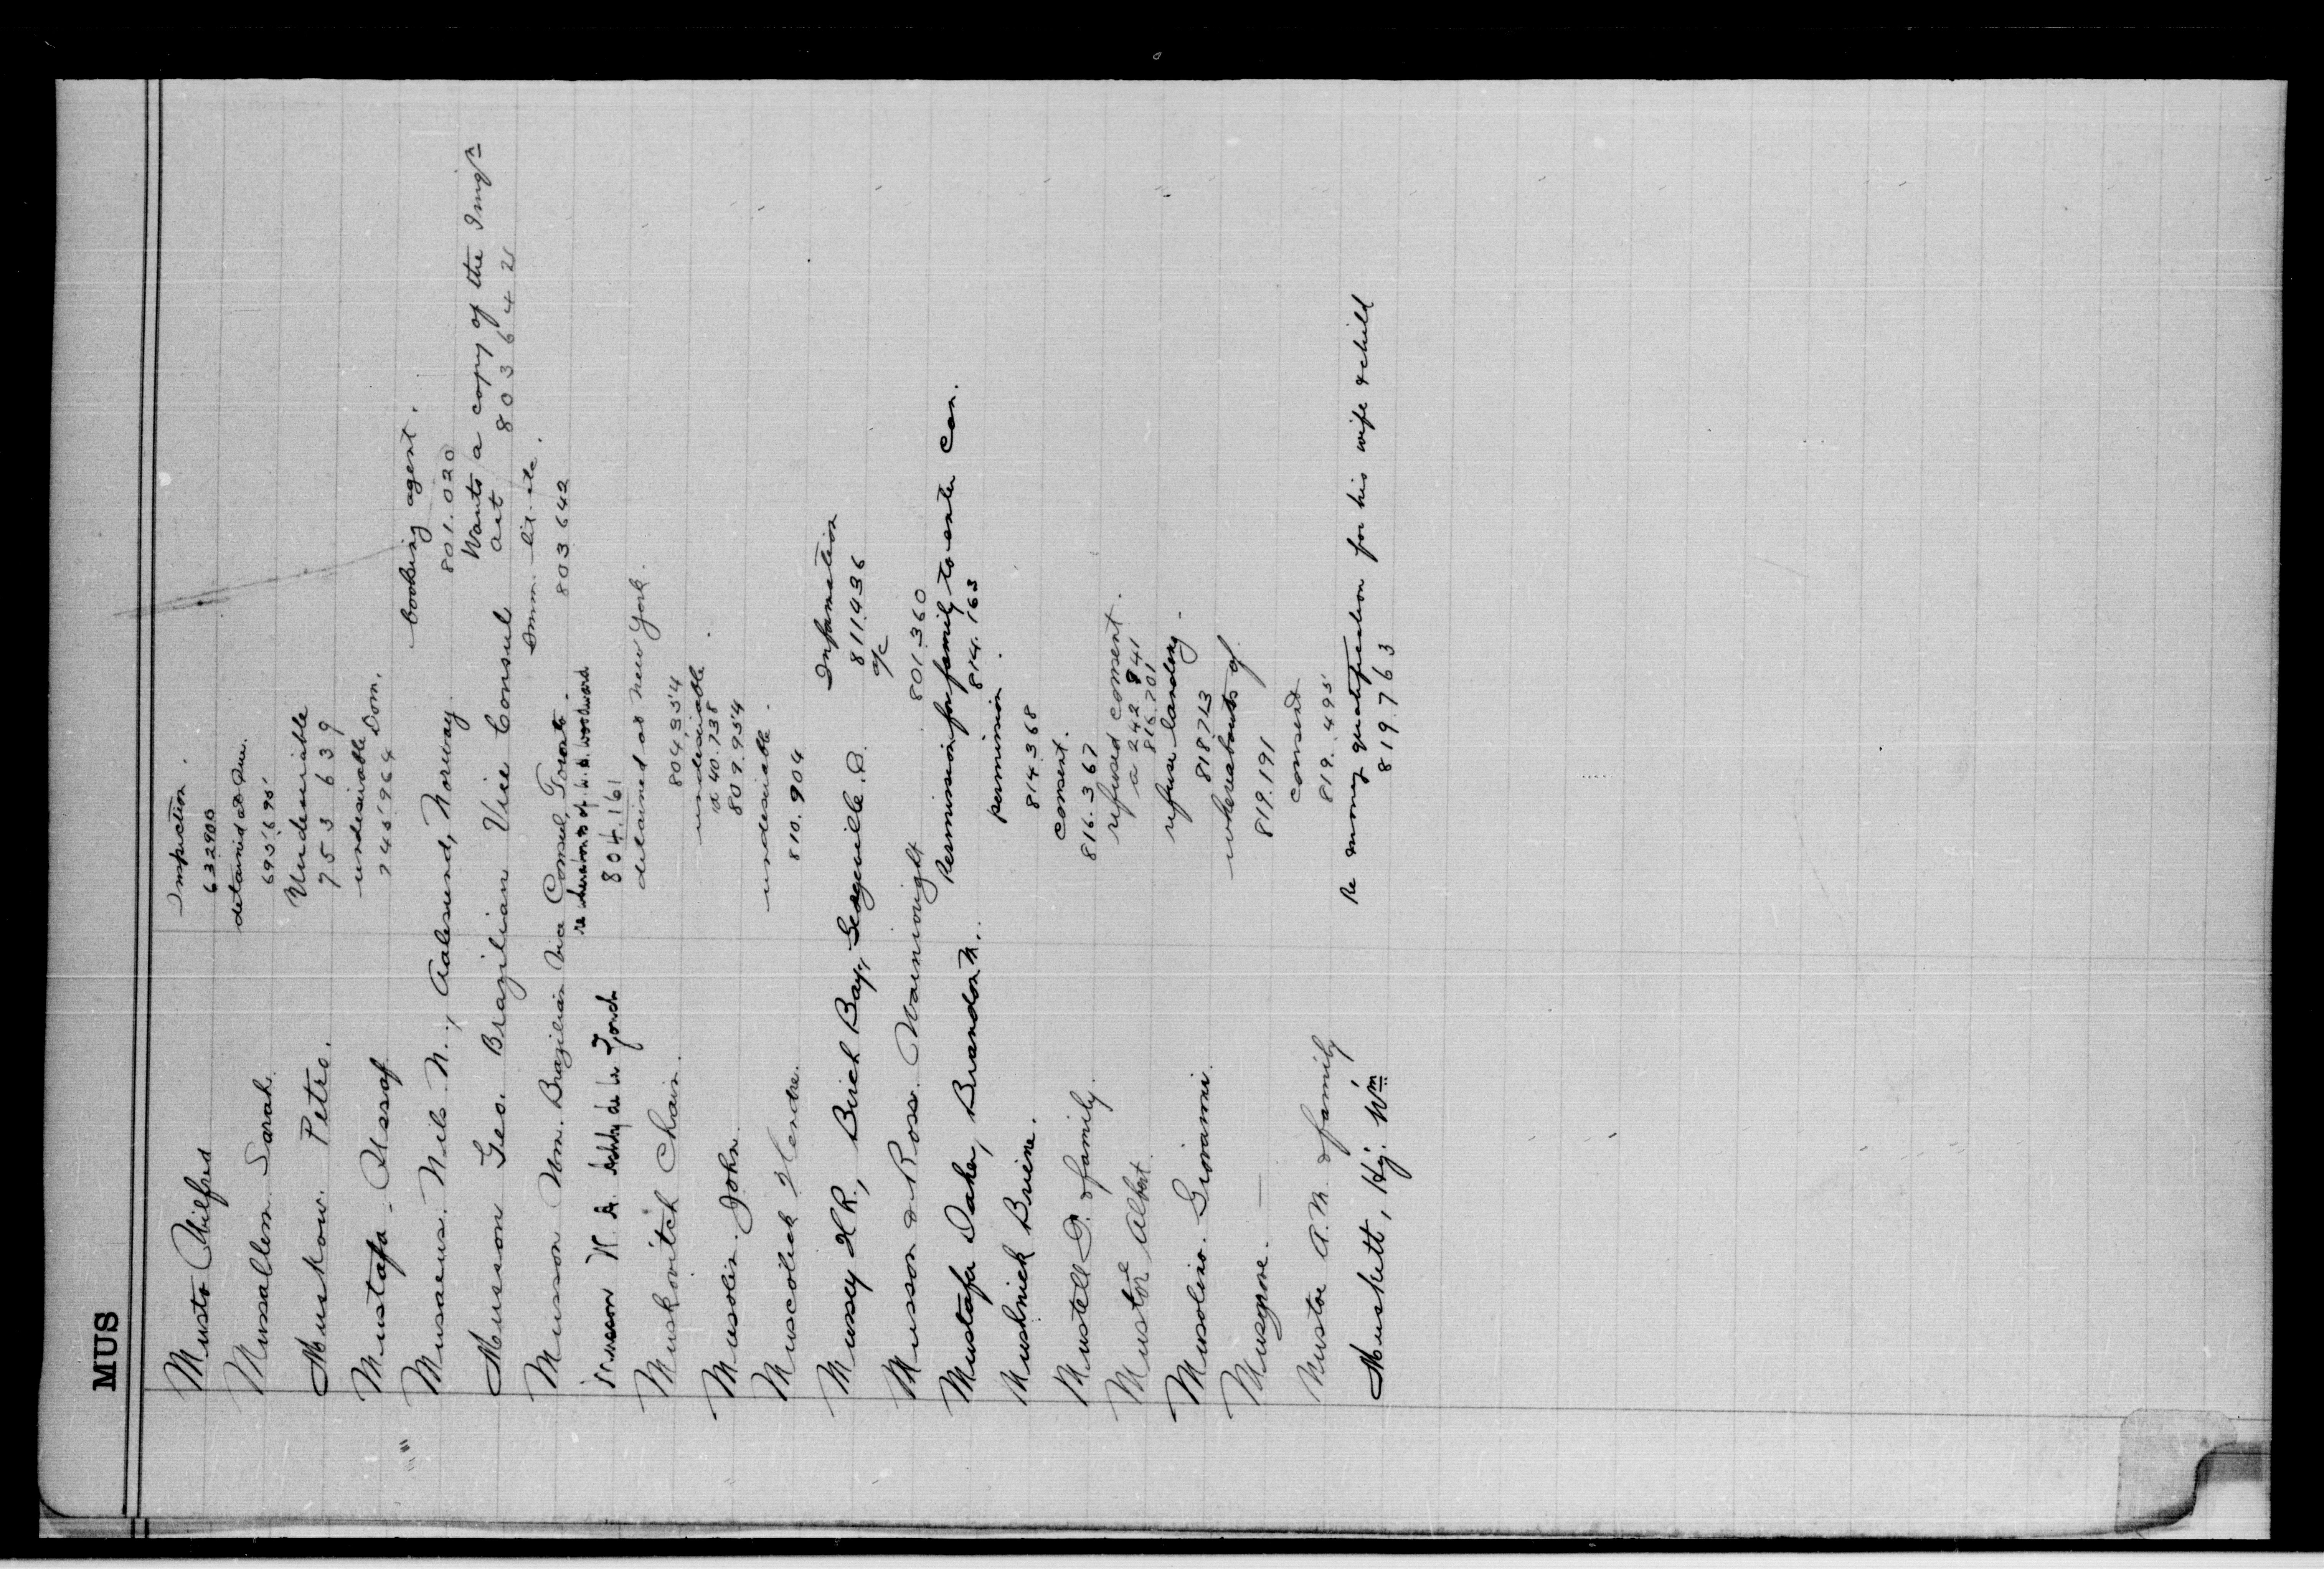 MUS
Musto Wilfred Inspection.
632900
Mussallem Sarah. detained at Que.
695695
Muskow. Petro. Undesirable
753639
Mustafa - Assaf undesirable Dom.
745964
Musaeus. Nils N., Aalesund, Norway booking agent.
801.020
Musson Geo. Brazilian Vice Consul Wants a copy of the Imigⁿ
act 803642
Musson Wm. Brazilian Vice Consul, Toronto. Imm. lit. etc.
803642
Musson re whereabouts of W. A. Woodward
804.161
Muskovitch Chain. detained at New York.
804354
Musolin. John. undesirable.
a 40.738
809.954
Muscolick undesirable.
810.904
Mussey H.R., Birch Bay, Georgeville. Q. Information
811.436
Musson & Ross. Wainwright a/c
801.360
Mustafa Daher, Brandon M.. Permission for family to enter Can.
814.163
Mushnick permission.
814368
Mustell D. & family. consent.
816.367
Mustoe Albert. refused consent.
a 242 941
816.701
Musolino. Giovanni. refuse landing.
818713
Musgrove. — whereabouts of
819.191
Mustoe A.M. & family consent
819.495
Muskett, Hy. Wm Re money qualification for his wife & child
819.763